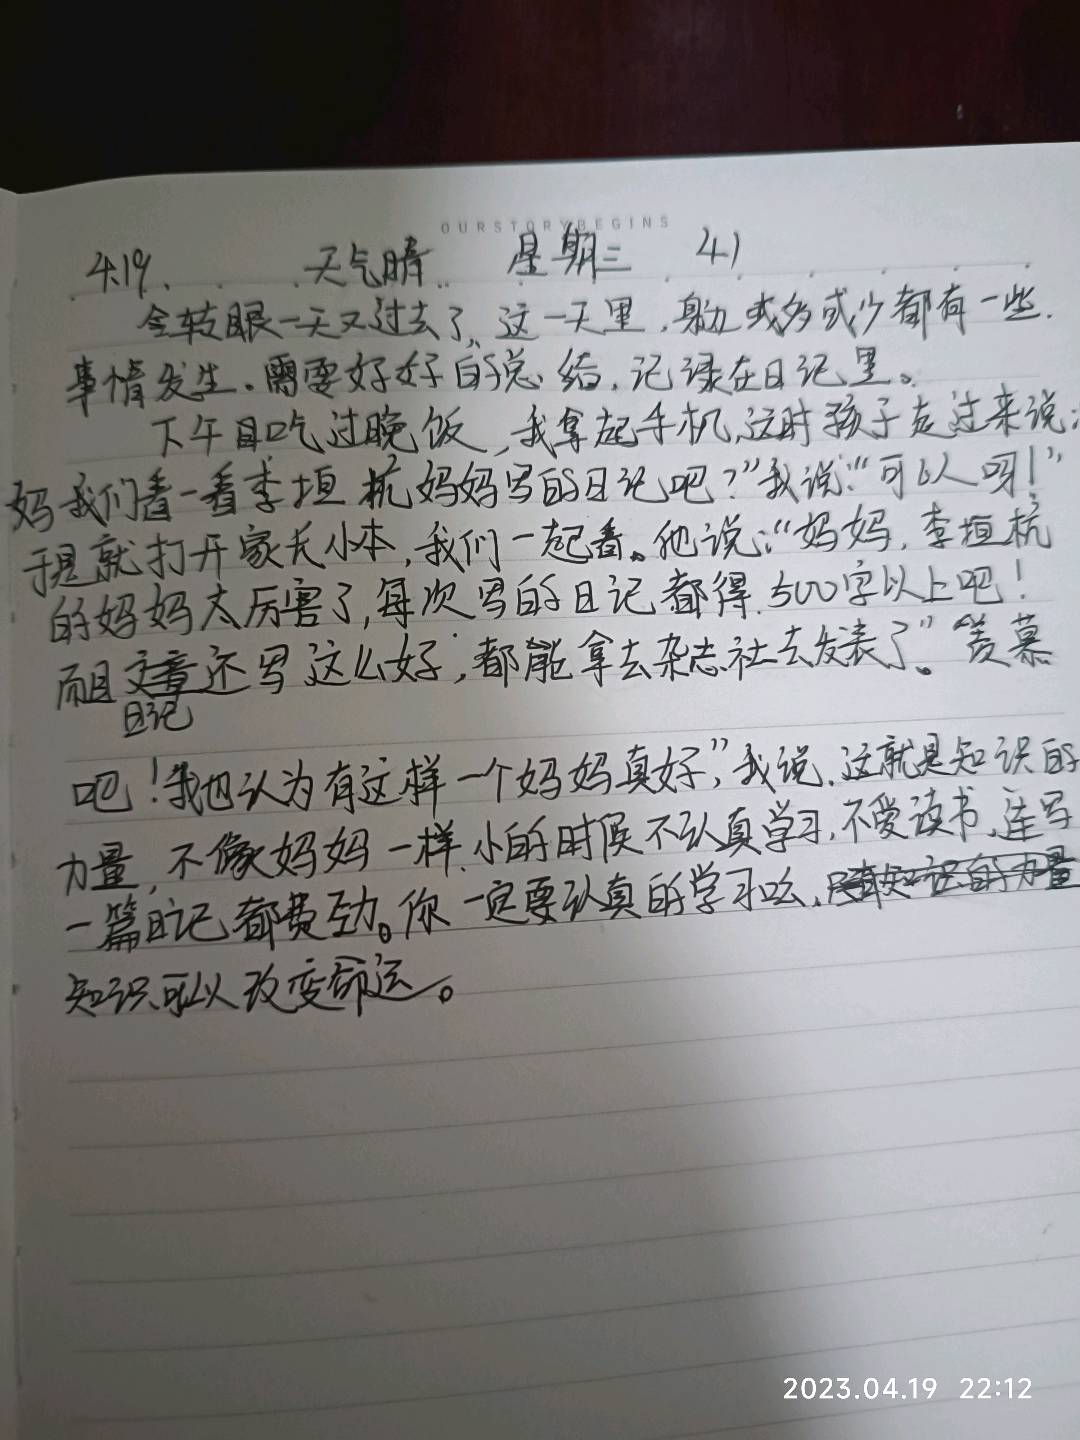 OURSTORYBEGINS
4.19. 天气晴 星期三 41
转眼一天又过去了,这一天里,身边或多或少都有一些.
事情发生.需要好好的总结,记录在日记里。
下午自吃过晚饭,我拿起手机,这时孩子走过来说:
妈我们看一看李垣杭妈妈写的日记吧?”我说:“可以呀!”
于是就打开家长小本,我们一起看。他说:“妈妈,李垣杭
的妈妈太厉害了,每次写的日记都得.500字以上吧!
而且文章还写这么好,都能拿去杂志社去发表了。”羡慕
日记
吧!我也认为有这样一个妈妈真好,”我说.这就是知识的
力量,不像妈妈一样.小的时候不认真学习,不爱读书,连写
一篇日记都费劲。你一定要认真的学习呀,知识的力量
知识可以改变命运。
2023.04.19 22:12